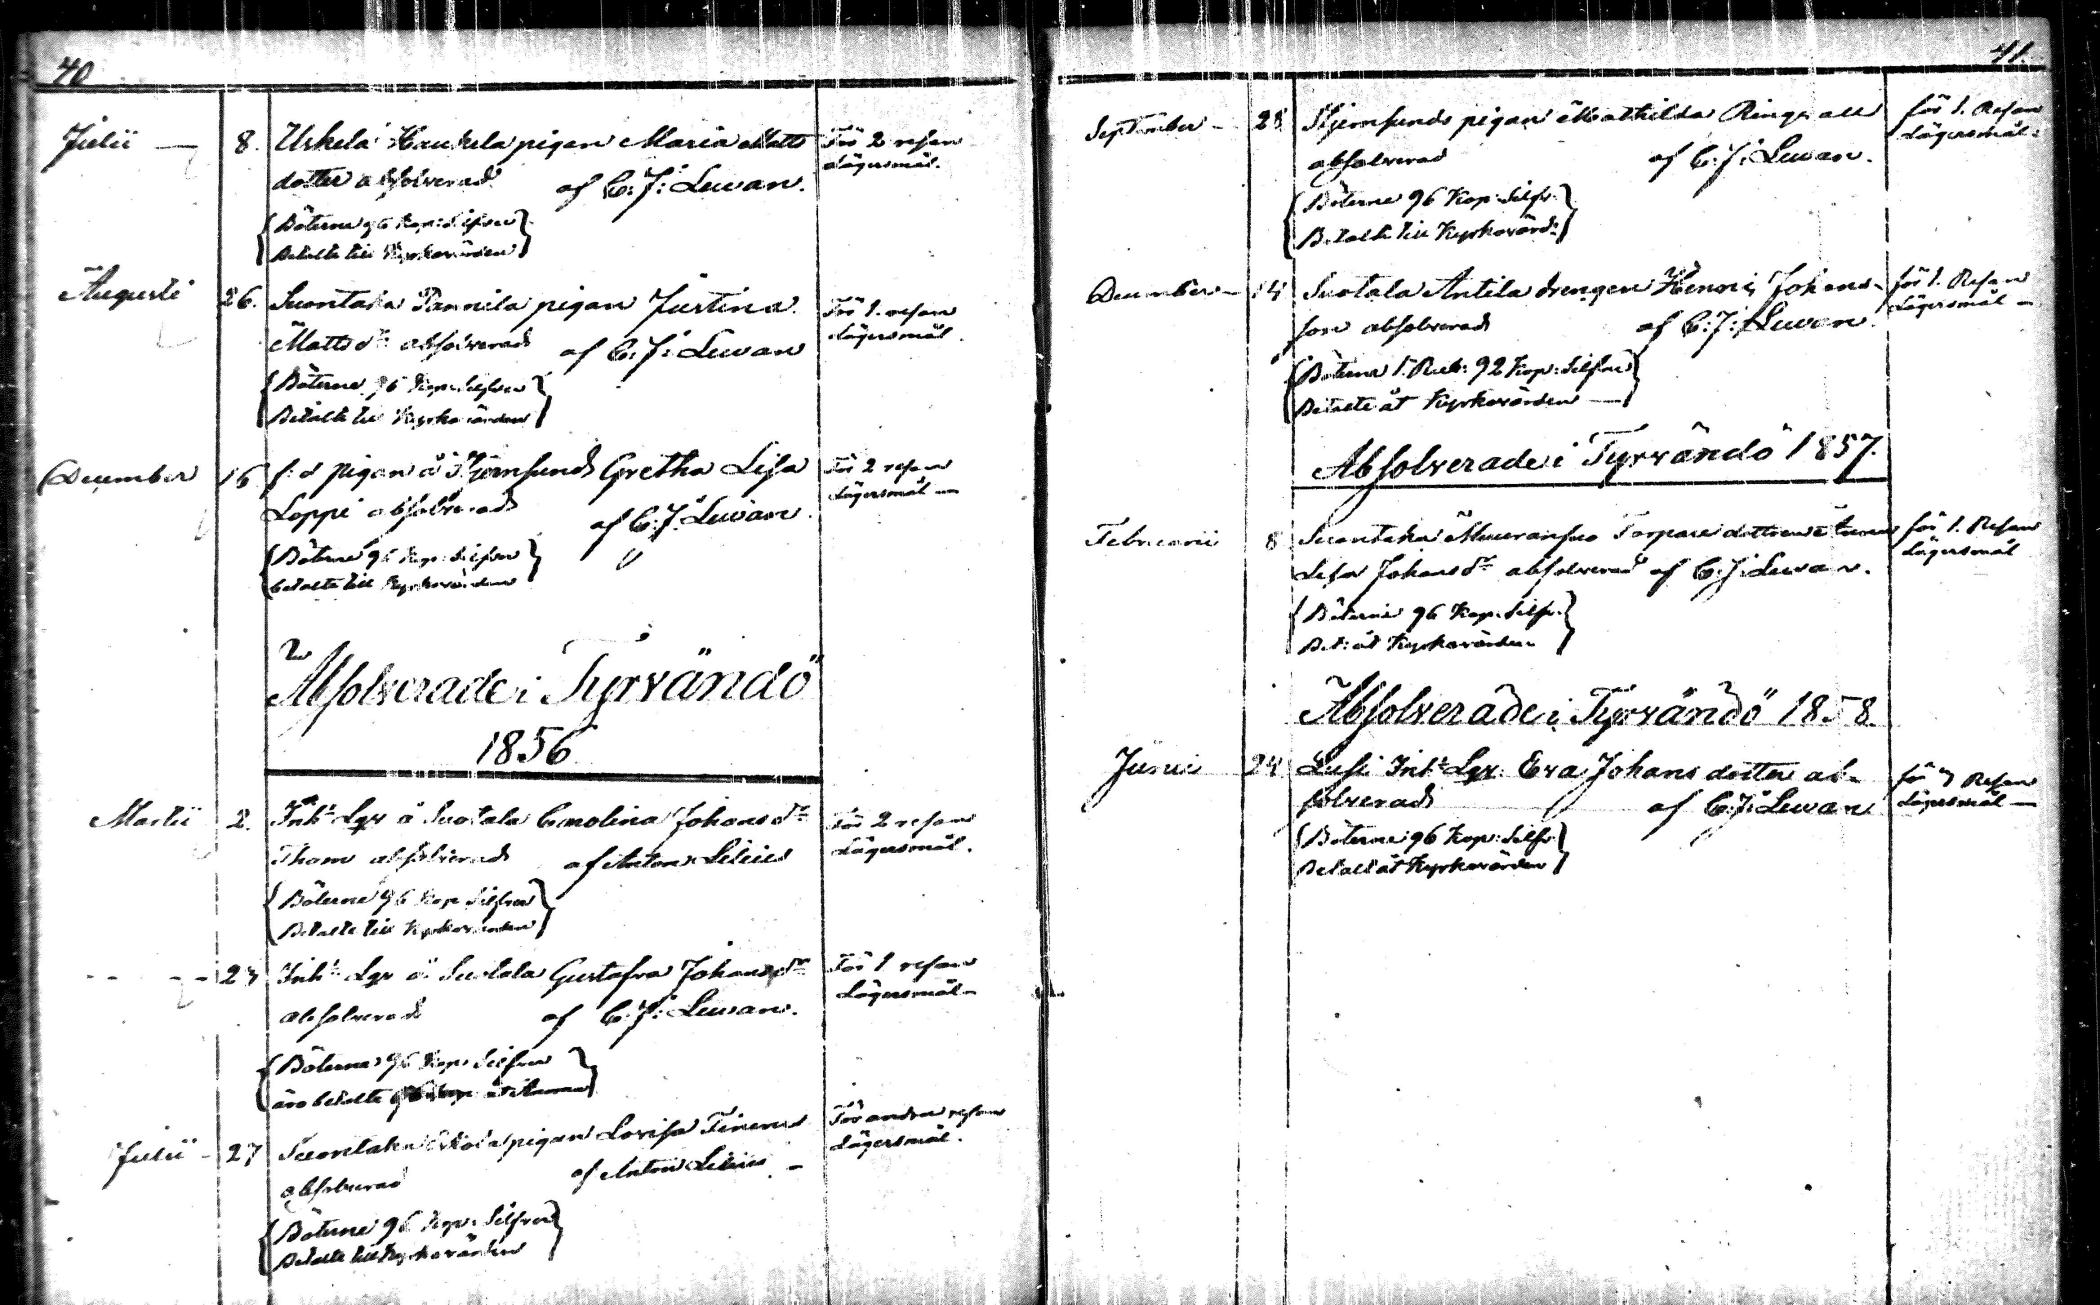 40
Julii — 8. Urkela Haukela pigan Maria Matts För 2 resan
dotter absolverad af C: J: Levan. Lägersmål.
Böterne 96 Kop: Silfver
Betalte till Kyrkovärden
Augusti 26. Suontaka Pannila pigan Justina För 1. resan
Mattsdr absolverad af C: J: Levan Lägersmål.
Böterne 96 Kop: Silfver
Betalte till Kyrkovärden
December 16 f: d pigan å Hjernsunds Gretha Lisa För 2 resan
Loppi absolverad af C: J. Levan. Lägersmål —
Böterne 96 Kop: Silfver
betalte till Kyrkovärden
Absolverade i Tyrvändö
1856
Martii 2. Inhs Lgr å Suotala Carolina Johansdr För 2 resan
Tham absolverad af Anton Lilius Lägersmål.
Böterne 96 Kop Silfver
Betalte till Kyrkovärden
- - - 24 Inhs Lgr å Suotala Gustafva Johansdr För 1 resan
absolverad af C: J: Levan. Lägersmål -
Böterne 96 Kop: Silfver
äro betalte
Julii - 27 Suontaka pigan Lovisa För andra resan
absolverad af Anton Lilius — Lägersmål.
Böterne 96 Kop: Silfver
Betalte till Kyrkovärden
41.
September - 28 Hjernsunds pigan Mathilda Ringvall för 1. Resan
absolverad af C: J: Levan. Lägersmål.
Böterne 96 Kop: Silfv:
Betalte till Kyrkovärd:
December - 14 Suotala Antila drengen Henric Johans- för 1. Resan
son absolverad af C: J: Levan Lägersmål —
Böterne 1. Rub: 92 Kop: Silfver
Betalte åt Kyrkovärden —
Absolverade i Tyrvändö 1857.
Februarii 8 Suontaka Torpare dottren för 1. Resan
Lisa Johansdr absolverad af C: J: Levan. Lägersmål
Böterne 96 Kop: Silfv:
Bet: åt Kyrkovärden
Absolverade i Tyrvändö 1858.
Junii 24 Inhs Lgr. Eva Johans dotter ab- för Resan
solverad af C: J: Levan Lägersmål —
Böterne 96 Kop: Silfv:
Betalt åt Kyrkovärden